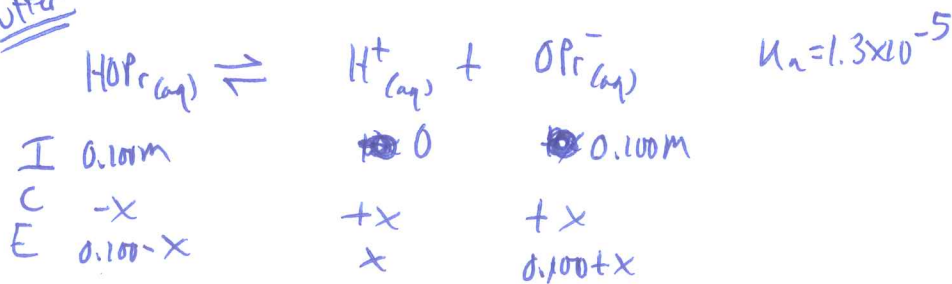 Buffer
HOPr(aq) ⇌ H⁺(aq) + OPr⁻(aq) Ka=1.3x10⁻⁵
I 0.100m 0 0.100M
C -x +x +x
E 0.100-x x 0.100+x